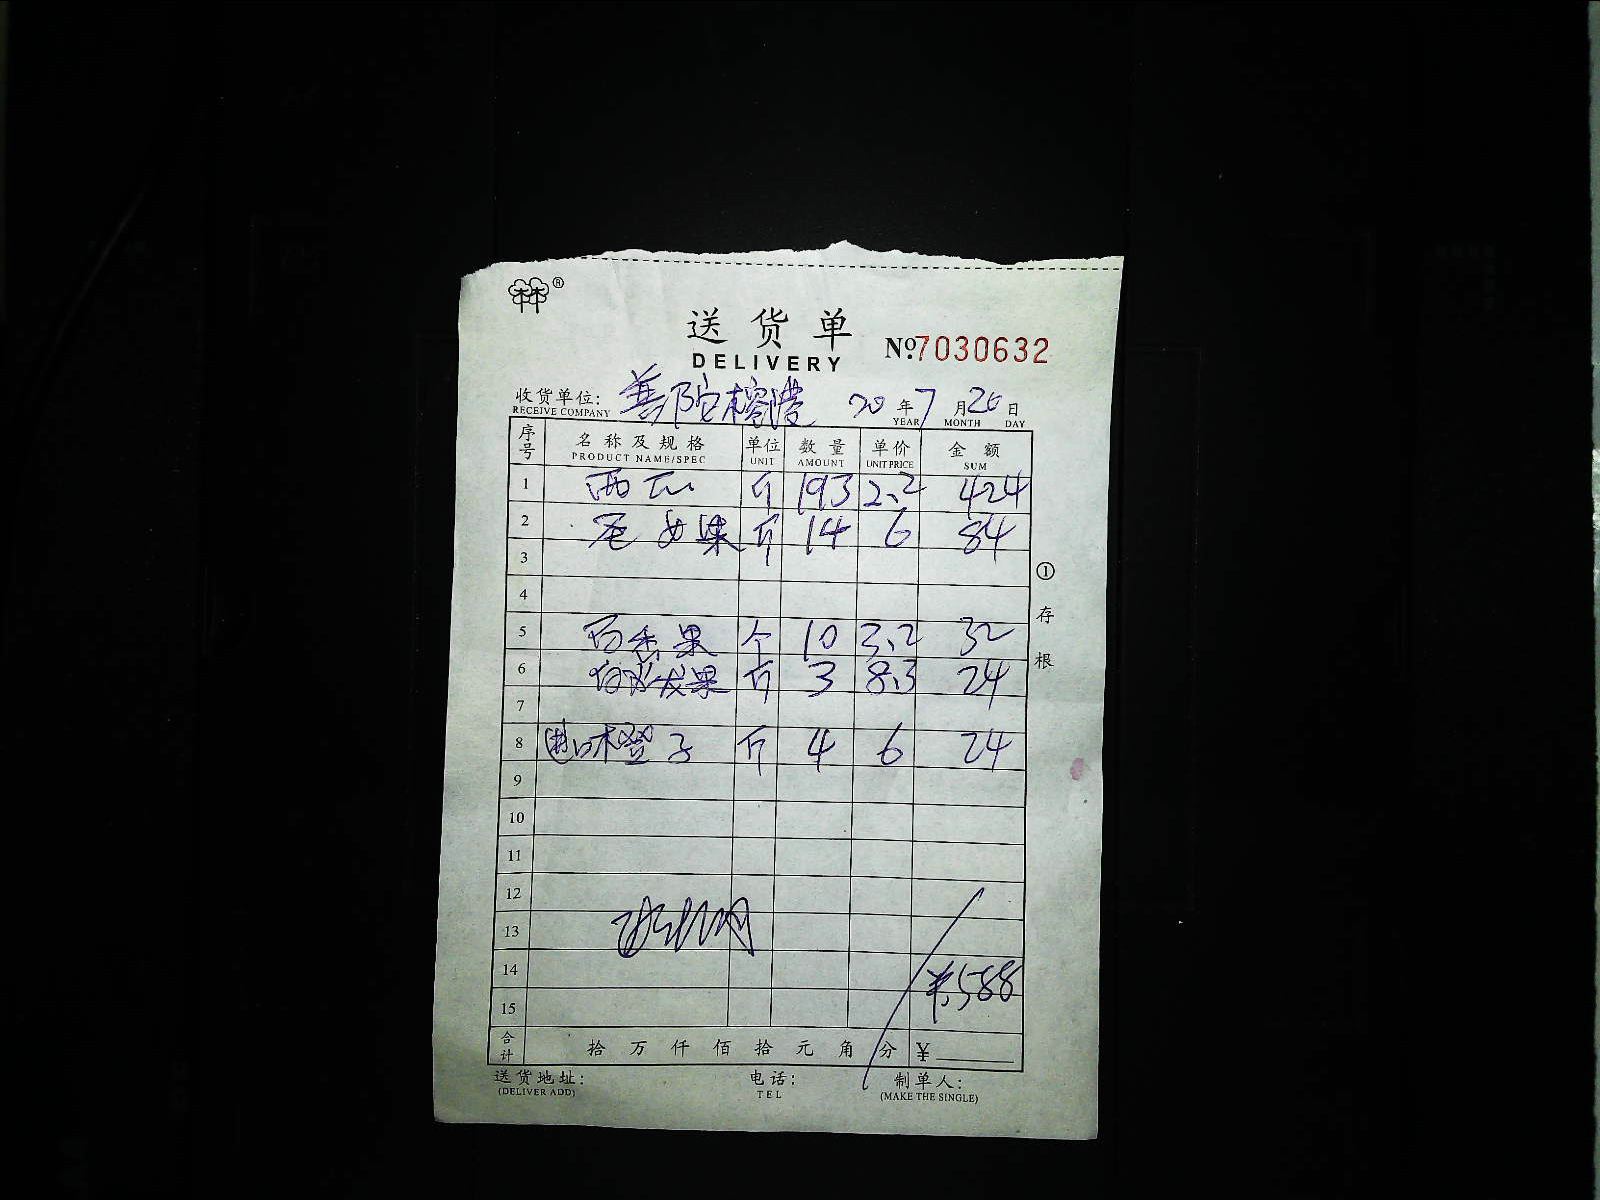 林林®
送货单
DELIVERY
No.7030632
收货单位: 普陀榕港 20年7月20日
RECEIVE COMPANY YEAR MONTH DAY
序号 名称及规格 单位 数量 单价 金额
PRODUCT NAME/SPEC UNIT AMOUNT UNIT PRICE SUM
1 西瓜 斤 193 2.2 424
2 斤 14 6 84
3
4
5 百香果 个 10 3.2 32
6 火龙果 斤 3 8.3 24
7
8 进口橙子 斤 4 6 24
9
10
11
12
13
14 ¥588
15
合计 拾 万 仟 佰 拾 元 角 分 ¥
① 存根
送货地址: 电话: 制单人:
(DELIVER ADD) TEL (MAKE THE SINGLE)